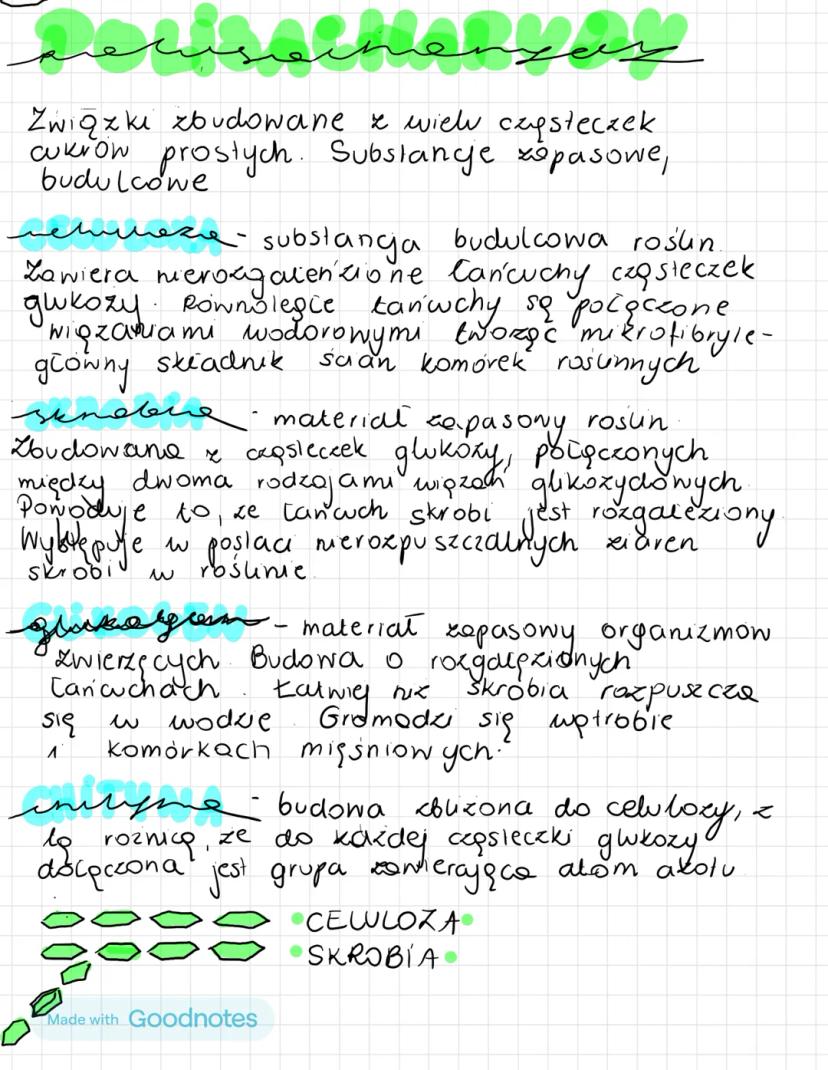 POLISACHARYDY
Związki zbudowane z wielu cząsteczek
cukrów prostych. Substancje zapasowe,
budulcowe
CELULOZA - substancja budulcowa roślin.
Zawiera nierozgałeńzione łańcuchy cząsteczek
glukozy. Równolegle łańcuchy są połączone
wiązaniami wodorowymi tworząc mikrofibryle -
główny składnik ścian komórek roślinnych
skrobia - materiał zapasowy roślin.
Zbudowana z cząsteczek glukozy, połączonych
między dwoma rodzajami wiązań glikozydowych.
Powoduje to, że łańcuch skrobi jest rozgałęziony.
Występuje w postaci nierozpuszczalnych ziaren
skrobi w roślinie.
glikogen - materiał zapasowy organizmów
zwierzęcych. Budowa o rozgałęzionych
łańcuchach. Łatwiej niż skrobia rozpuszcza
się w wodzie. Gromadzi się wątrobie
i komórkach mięśniowych.
CHITYNA - budowa zbliżona do celulozy, z
tą różnicą, że do każdej cząsteczki glukozy
dołączona jest grupa zawierająca atom azotu
CELULOZA
SKROBIA
Made with Goodnotes